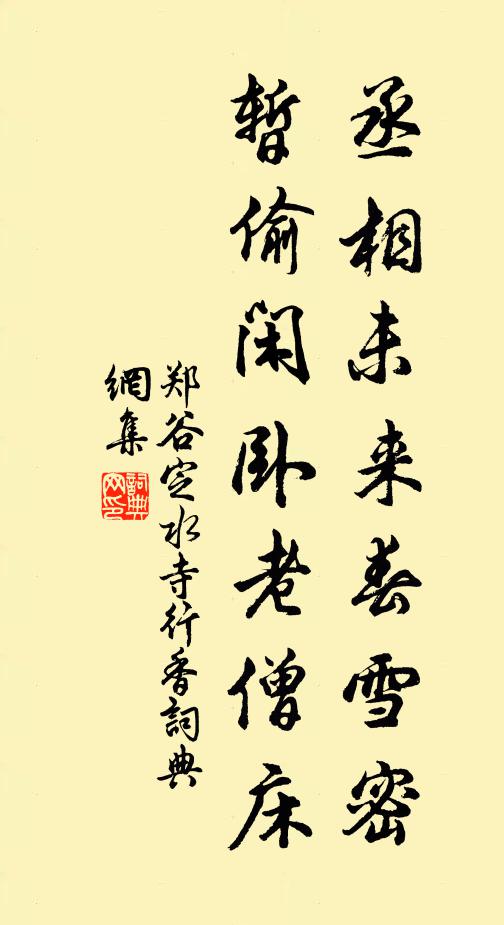 丞相未来春雪密
暂偷闲卧老僧床
郑谷定水寺行香詞典
網集
詞典
网印